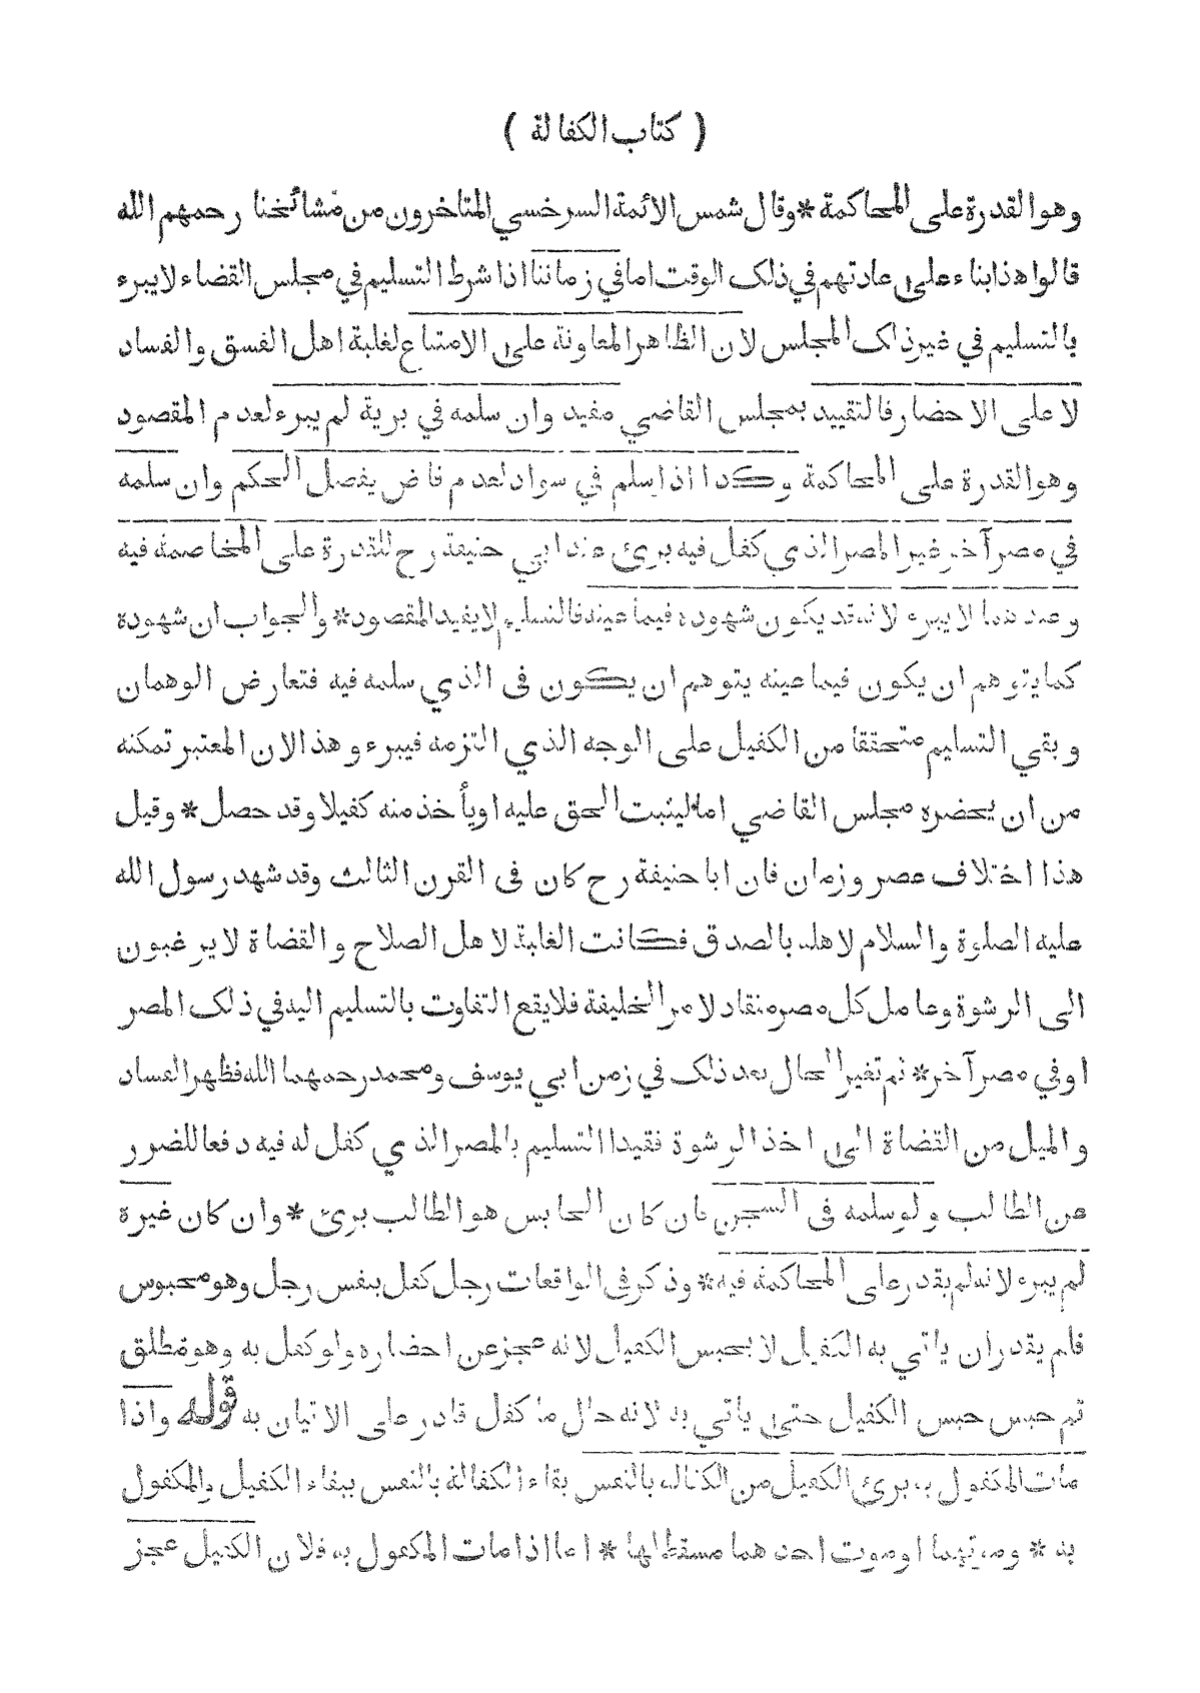 ( كتاب الكفالة )
وهو القدرة على المحاكمة * وقال شمس الائمة السرخسي المتاخرون من مشائخنا رحمهم الله
قالوا هذا بناء على عادتهم في ذلك الوقت اما في زماننا اذا شرط التسليم في مجلس القضاء لا يبرء
بالتسليم في غير ذلك المجلس لان الظاهر المعاونة على الامتناع لغلبة اهل الفسق والفساد
لا على الاحضار فالتقييد بمجلس القاضي مفيد وان سلمه في برية لم يبرء لعدم المقصود
وهو القدرة على المحاكمة وكذا اذا سلم في سواد لعدم قاض يفصل الحكم وان سلمه
في مصر آخر غير المصر الذي كفل فيه برئ عند ابي حنيفة رح للقدرة على المخاصمة فيه
وعندهما لا يبرء لانه قد يكون شهوده فيما عينه فالتسليم لا يفيد المقصود * والجواب ان شهوده
كما يتوهم ان يكون فيما عينه يتوهم ان يكون في الذي سلمه فيه فتعارض الوهمان
وبقي التسليم متحققا من الكفيل على الوجه الذي التزمه فيبرء وهذا الان المعتبر تمكنه
من ان يحضره مجلس القاضي اما ليثبت الحق عليه او يأخذ منه كفيلا وقد حصل * وقيل
هذا اختلاف عصر وزمان فان ابا حنيفة رح كان في القرن الثالث وقد شهد رسول الله
عليه الصلوة والسلام لاهله بالصدق فكانت الغلبة لاهل الصلاح والقضاة لا يرغبون
الى الرشوة وعامل كل مصر منقاد لامر الخليفة فلا يقع التفاوت بالتسليم اليه في ذلك المصر
او في مصر آخر * ثم تغير الحال بعد ذلك في زمن ابي يوسف ومحمد رحمهما الله فظهر الفساد
والميل من القضاة الى اخذ الرشوة فقيدا التسليم بالمصر الذي كفل له فيه دفعا للضرر
عن الطالب ولو سلمه في السجن فان كان الحابس هو الطالب برئ * وان كان غيره
لم يبرء لانه لم يقدر على المحاكمة فيه * وذكر في الواقعات رجل كفل بنفس رجل وهو محبوس
فلم يقدر ان ياتي به الكفيل لا يحبس الكفيل لانه عجز عن احضاره ولو كفل به وهو مطلق
ثم حبس حبس الكفيل حتى ياتي به لانه حال ما كفل قادر على الاتيان به قوله واذا
مات المكفول به برئ الكفيل من الكفالة بالنفس بقاء الكفالة بالنفس ببقاء الكفيل والمكفول
به * وموتهما او موت احدهما مسقط لها * اما اذا مات المكفول به فلان الكفيل عجز